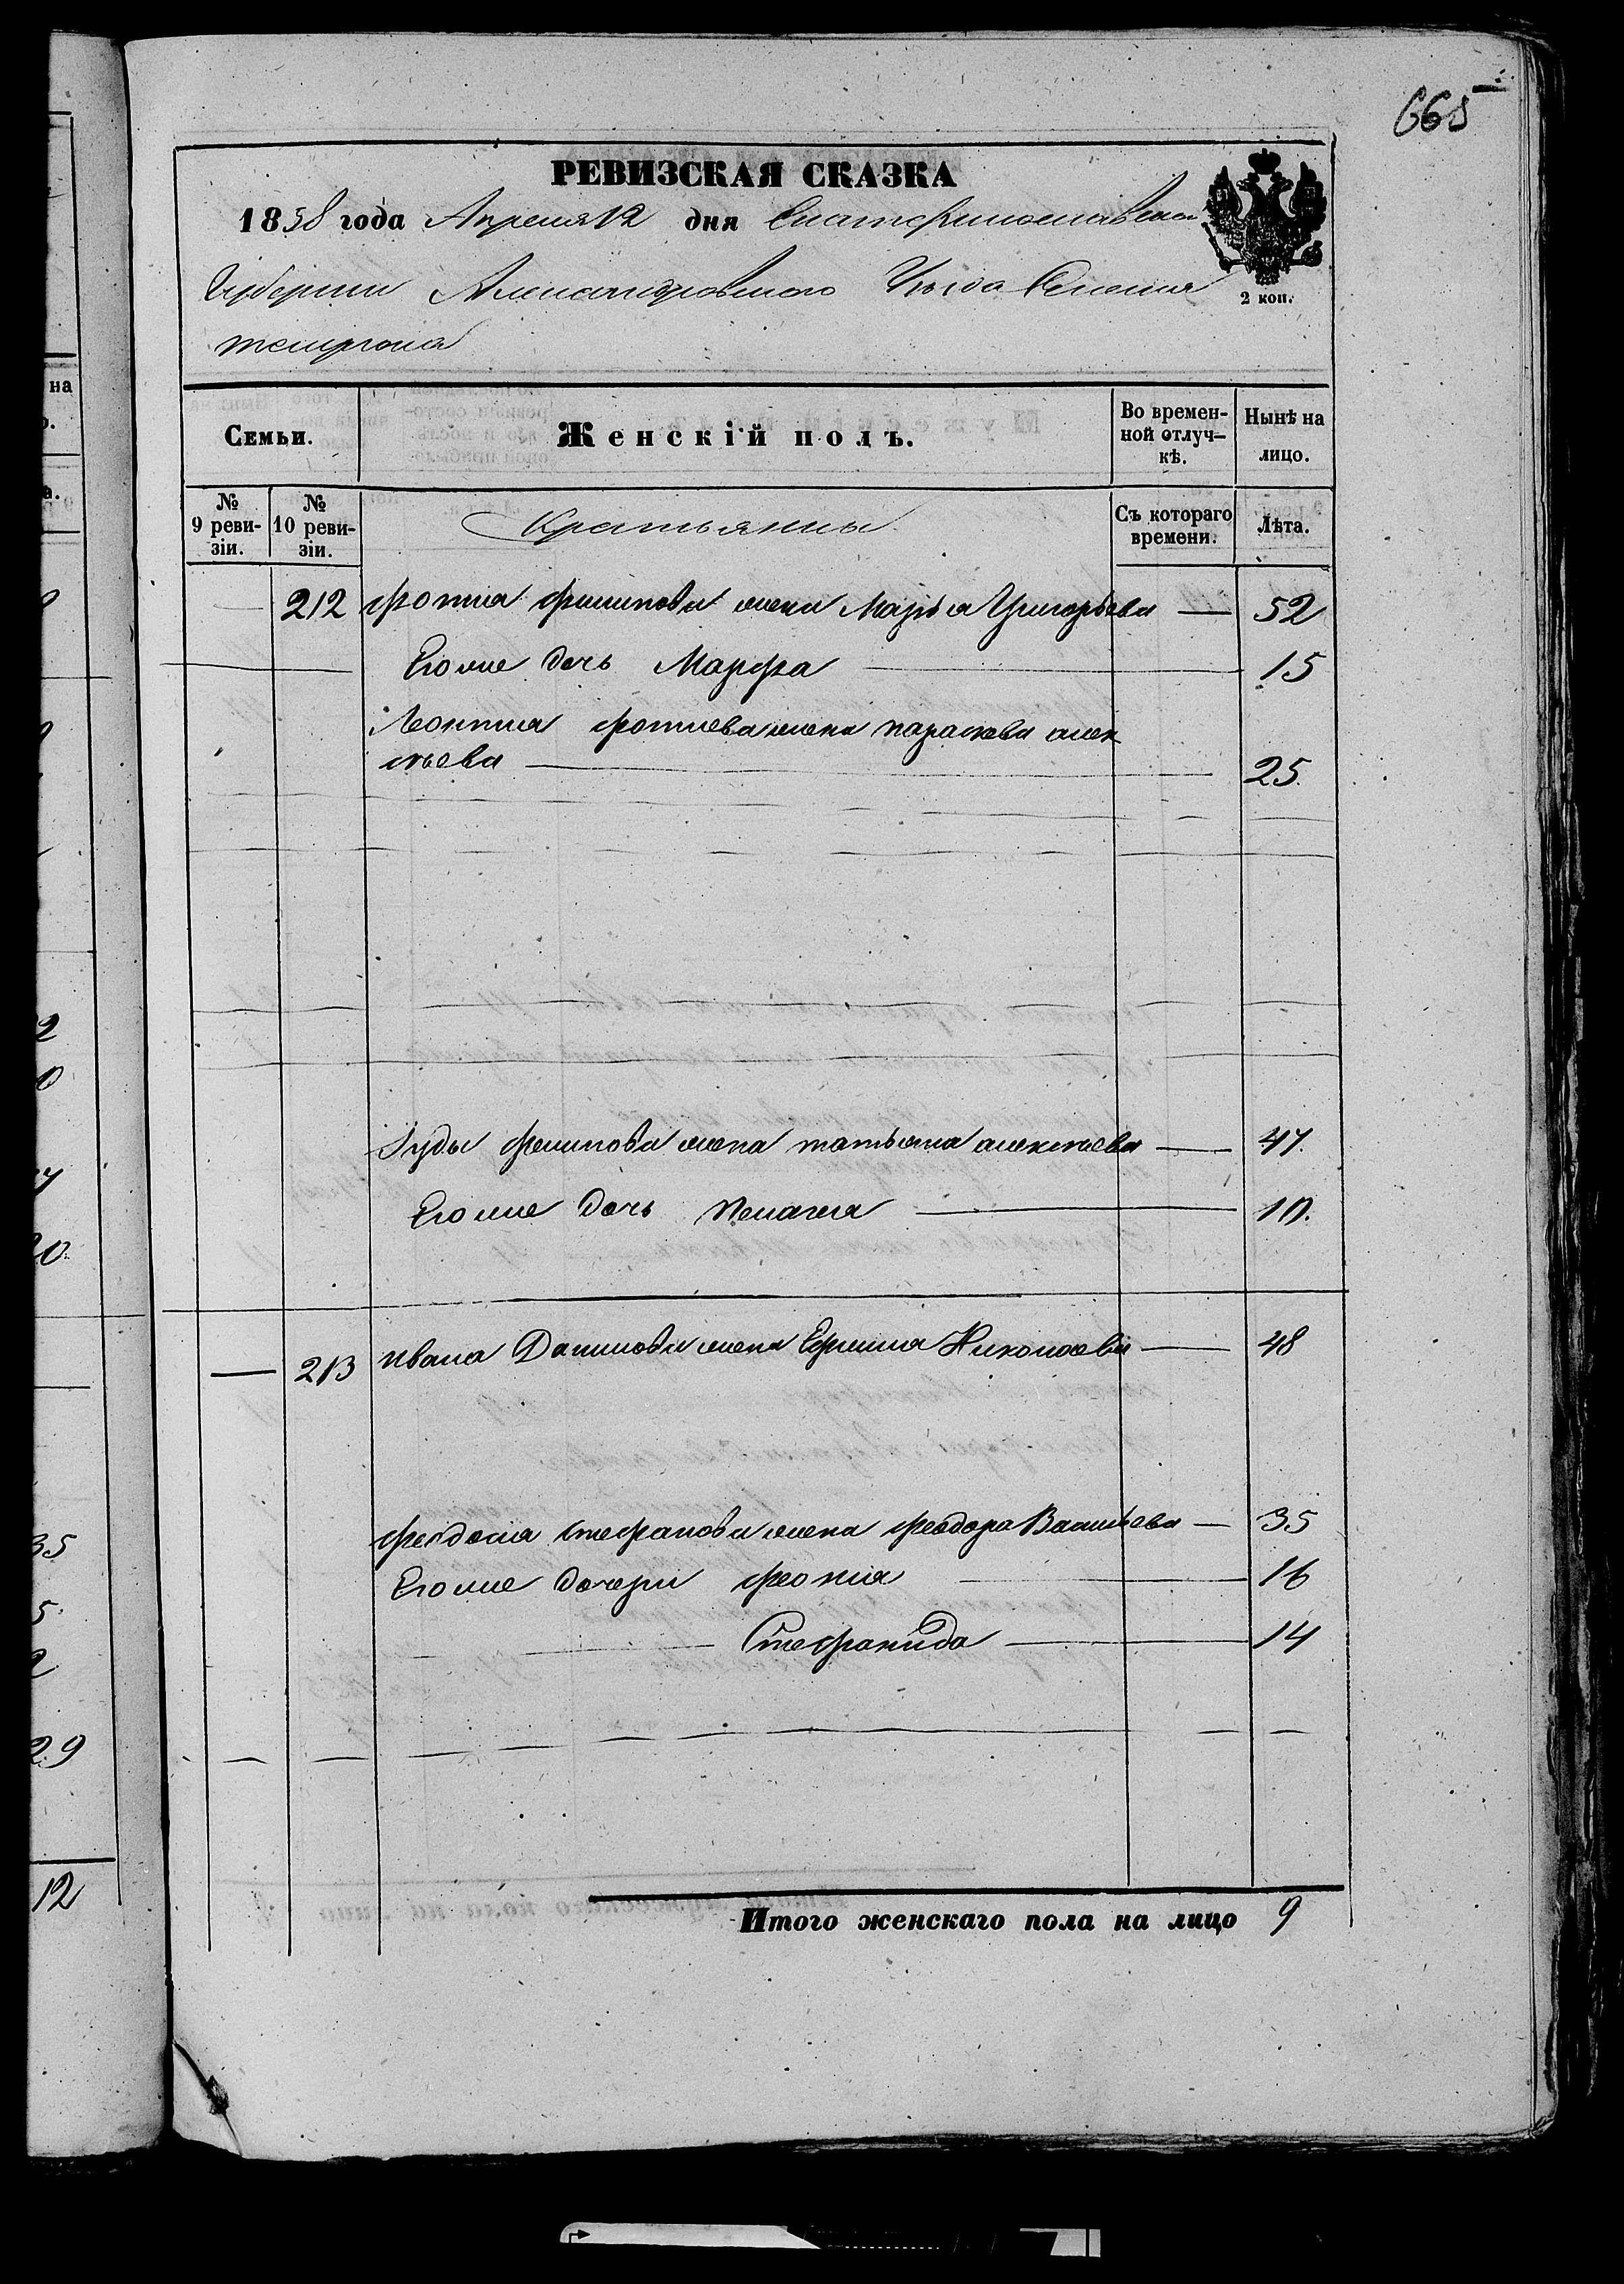 665
РЕВИЗСКАЯ СКАЗКА
1858 года Апреля 12 дня Екатеринославской
Губернии Александровского Уезда Селения
2 коп.
Темрюка
на
Семьи.
Женскій полъ.
Во времен-
ной отлуч-
кѣ.
Нынѣ на
лицо.
№
9 реви-
зіи.
№
10 реви-
зіи.
Крестьянны
Съ котораго
времени.
Лѣта.
212 Фотия Филипова жена Марья Григорьева — 52
Его же дочь Марфа 15
Леонтия Фотиева жена параскева алек
сѣева 25.
Іуды Филипова жена татьяна алексѣева — 47.
Его же дочь пелагея 10.
— 213 ивана Данилова жена Ефимия Николаева — 48
Феодосия Стефанова жена Феодора Васильева — 35
Его же дочери Феония 16
Стефанида 14
Итого женскаго пола на лицо 9
35
29
12